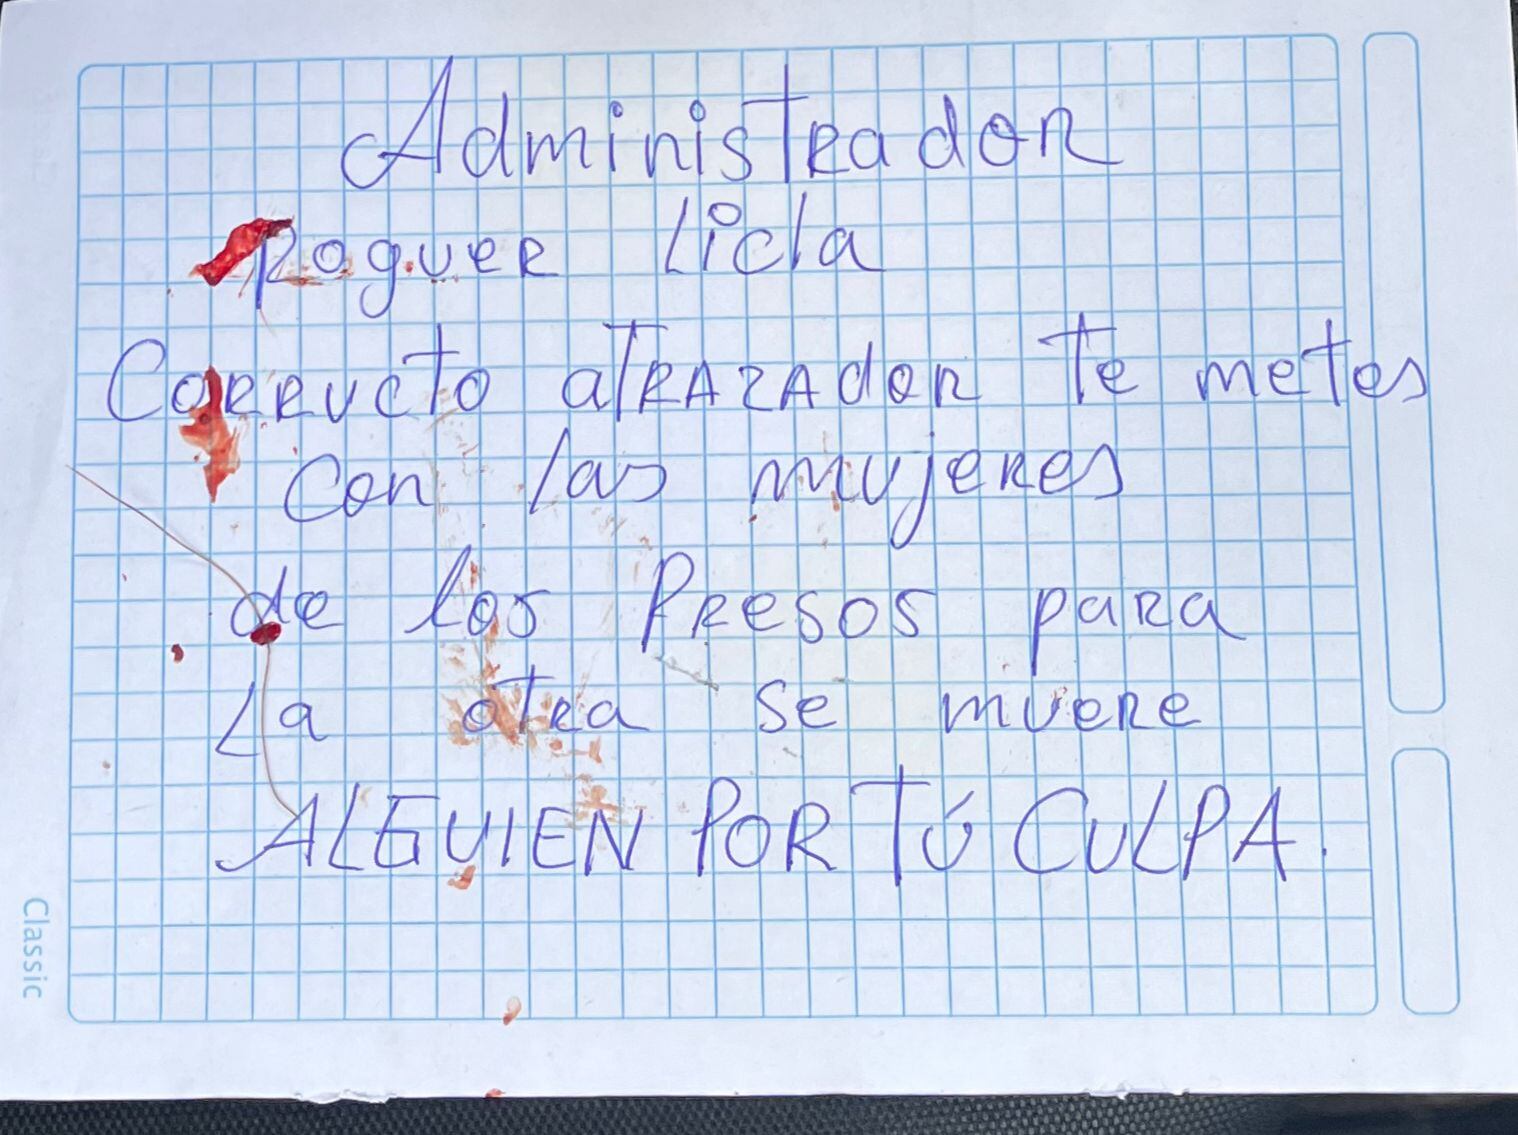 Administrador
Roguer Licla
Corructo atrazador te metes
con las mujeres
de los Presos para
La otra se muere
ALGUIEN POR TÚ CULPA.
Classic